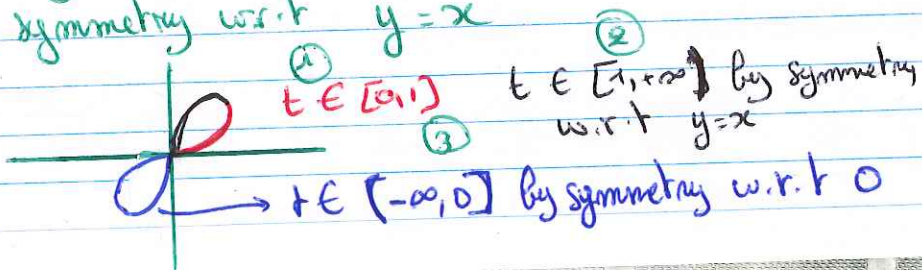 symmetry w.r.t y = x
① ②
t ∈ [0,1] t ∈ [1,+∞) by symmetry
③ w.r.t y=x
→ t ∈ (-∞,0] by symmetry w.r.t 0